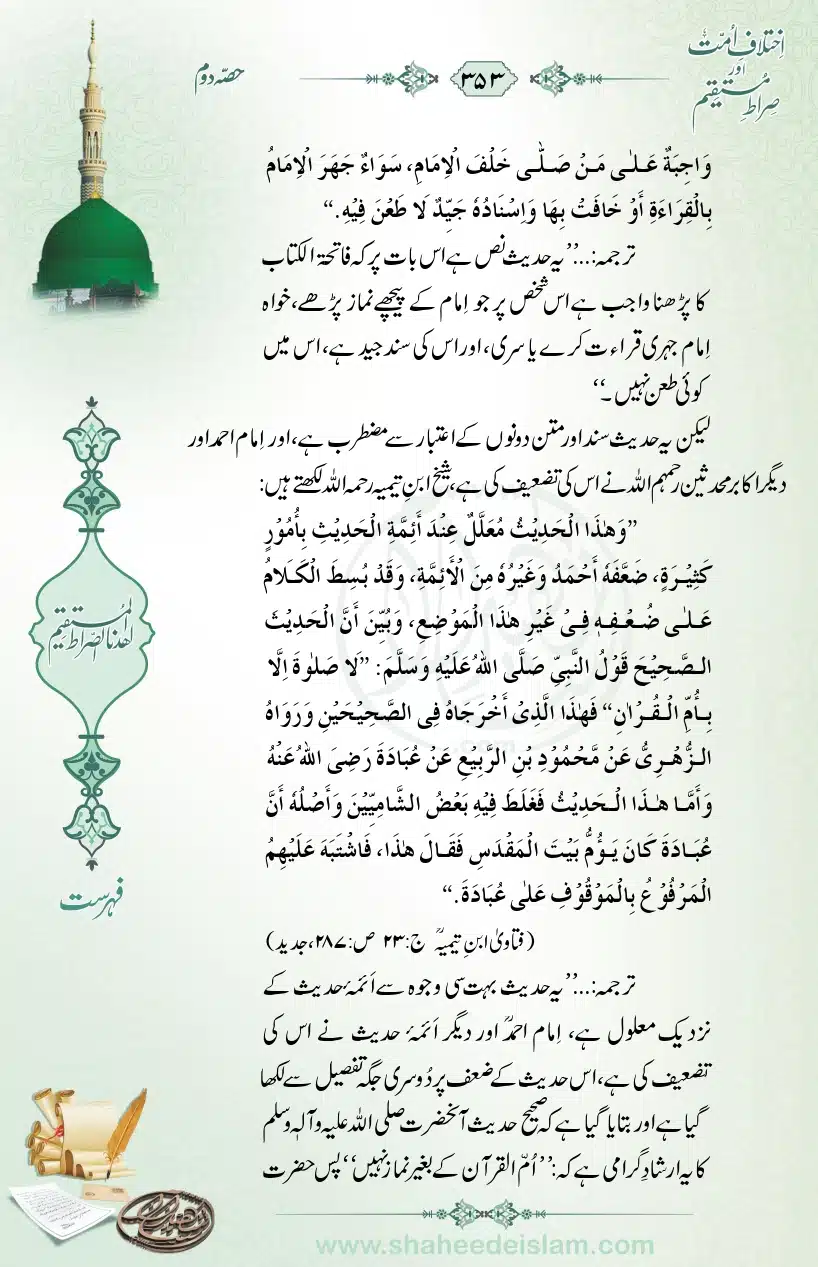 اِختلافِ اُمّت
اور
صِراطِ مُستقیم
۳۵۳
حصّہ دوم
وَاجِبَۃٌ عَلٰی مَنْ صَلّٰی خَلْفَ الْاِمَامِ، سَوَاءٌ جَھَرَ الْاِمَامُ
بِالْقِرَاءَۃِ أَوْ خَافَتْ بِھَا وَاِسْنَادُہٗ جَیِّدٌ لَا طَعْنَ فِیْہِ.“
ترجمہ:...’’یہ حدیث نص ہے اس بات پر کہ فاتحۃ الکتاب
کا پڑھنا واجب ہے اس شخص پر جو اِمام کے پیچھے نماز پڑھے، خواہ
اِمام جہری قراءت کرے یا سری، اور اس کی سند جید ہے، اس میں
کوئی طعن نہیں۔‘‘
لیکن یہ حدیث سند اور متن دونوں کے اعتبار سے مضطرب ہے، اور اِمام احمد اور
دیگر اکابر محدثین رحمہم اللہ نے اس کی تضعیف کی ہے، شیخ ابنِ تیمیہ رحمہ اللہ لکھتے ہیں:
”وَھٰذَا الْحَدِیْثُ مُعَلَّلٌ عِنْدَ أَئِمَّۃِ الْحَدِیْثِ بِأُمُوْرٍ
کَثِیْرَۃٍ، ضَعَّفَہٗ أَحْمَدُ وَغَیْرُہٗ مِنَ الْأَئِمَّۃِ، وَقَدْ بُسِطَ الْکَلَامُ
عَلٰی ضُعْفِہٖ فِیْ غَیْرِ ھٰذَا الْمَوْضِعِ، وَبُیِّنَ أَنَّ الْحَدِیْثَ
الصَّحِیْحَ قَوْلُ النَّبِیِّ صَلَّی اللہُ عَلَیْہِ وَسَلَّمَ: ”لَا صَلٰوۃَ اِلَّا
بِأُمِّ الْقُرْاٰنِ“ فَھٰذَا الَّذِیْ أَخْرَجَاہُ فِی الصَّحِیْحَیْنِ وَرَوَاہُ
الزُّھْرِیُّ عَنْ مَّحْمُوْدِ بْنِ الرَّبِیْعِ عَنْ عُبَادَۃَ رَضِیَ اللہُ عَنْہُ
وَأَمَّا ھٰذَا الْحَدِیْثُ فَغَلَطَ فِیْہِ بَعْضُ الشَّامِیِّیْنَ وَأَصْلُہٗ أَنَّ
عُبَادَۃَ کَانَ یَؤُمُّ بَیْتَ الْمَقْدَسِ فَقَالَ ھٰذَا، فَاشْتَبَہَ عَلَیْھِمُ
الْمَرْفُوْعُ بِالْمَوْقُوْفِ عَلٰی عُبَادَۃَ.“
(فتاویٰ ابنِ تیمیہؒ ج:۲۳ ص:۲۸۷، جدید)
ترجمہ:...’’یہ حدیث بہت سی وجوہ سے اَئمۂ حدیث کے
نزدیک معلول ہے، اِمام احمدؒ اور دیگر اَئمۂ حدیث نے اس کی
تضعیف کی ہے، اس حدیث کے ضعف پر دُوسری جگہ تفصیل سے لکھا
گیا ہے اور بتایا گیا ہے کہ صحیح حدیث آنحضرت صلی اللہ علیہ وآلہ وسلم
کا یہ ارشادِ گرامی ہے کہ: ’’اُمّ القرآن کے بغیر نماز نہیں‘‘ پس حضرت
اهدنا الصراط المستقیم
فہرست
www.shaheedeislam.com